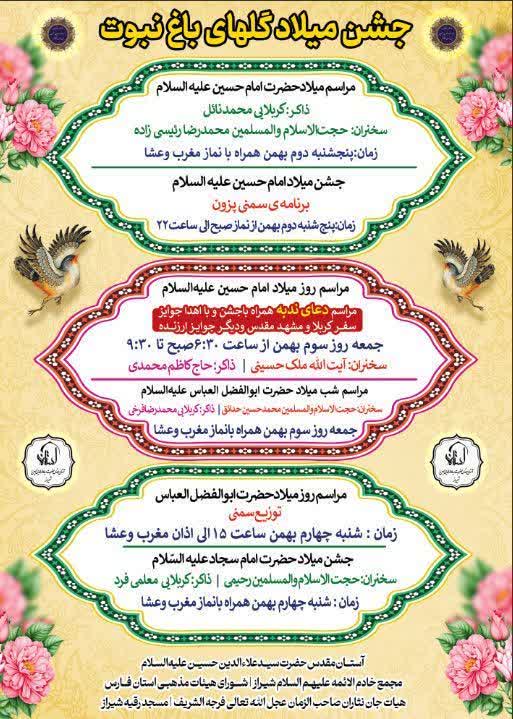 جشن میلاد گلهای باغ نبوت
مراسم میلاد حضرت امام حسین علیه السلام
ذاکر: کربلایی محمد نائل
سخنران: حجت‌الاسلام والمسلمین محمدرضا رئیسی زاده
زمان: پنجشنبه دوم بهمن همراه با نماز مغرب وعشا
جشن میلاد امام حسین علیه السلام
برنامه ی سمنی پزون
زمان: پنج شنبه دوم بهمن از نماز صبح الی ساعت ۲۲
مراسم روز میلاد امام حسین علیه‌السلام
مراسم دعای ندبه همراه باجشن و با اهدا جوایز
سفر کربلا و مشهد مقدس ودیگر جوایز ارزنده
جمعه روز سوم بهمن از ساعت ۶:۳۰ صبح تا ۹:۳۰
سخنران: آیت الله ملک حسینی | ذاکر: حاج کاظم محمدی
مراسم شب میلاد حضرت ابوالفضل العباس علیه‌السلام
سخنران: حجت الاسلام والمسلمین محمدحسین حدائق | ذاکر: کربلایی محمدرضا فرخی
جمعه روز سوم بهمن همراه بانماز مغرب وعشا
مراسم روز میلاد حضرت ابوالفضل العباس
توزیع سمنی
زمان : شنبه چهارم بهمن ساعت ۱۵ الی اذان مغرب وعشا
جشن میلاد حضرت امام سجاد علیه السّلام
سخنران: حجت‌الاسلام والمسلمین رحیمی | ذاکر: کربلایی معلمی فرد
زمان : شنبه چهارم بهمن همراه بانماز مغرب وعشا
آستان مقدس حضرت سیدعلاءالدین حسین علیه‌السلام
مجمع خادم الائمه علیهم السلام شیراز | شورای هیئات مذهبی استان فارس
هیات جان نثاران صاحب الزمان عجل الله تعالی فرجه الشریف | مسجد رقیه شیراز